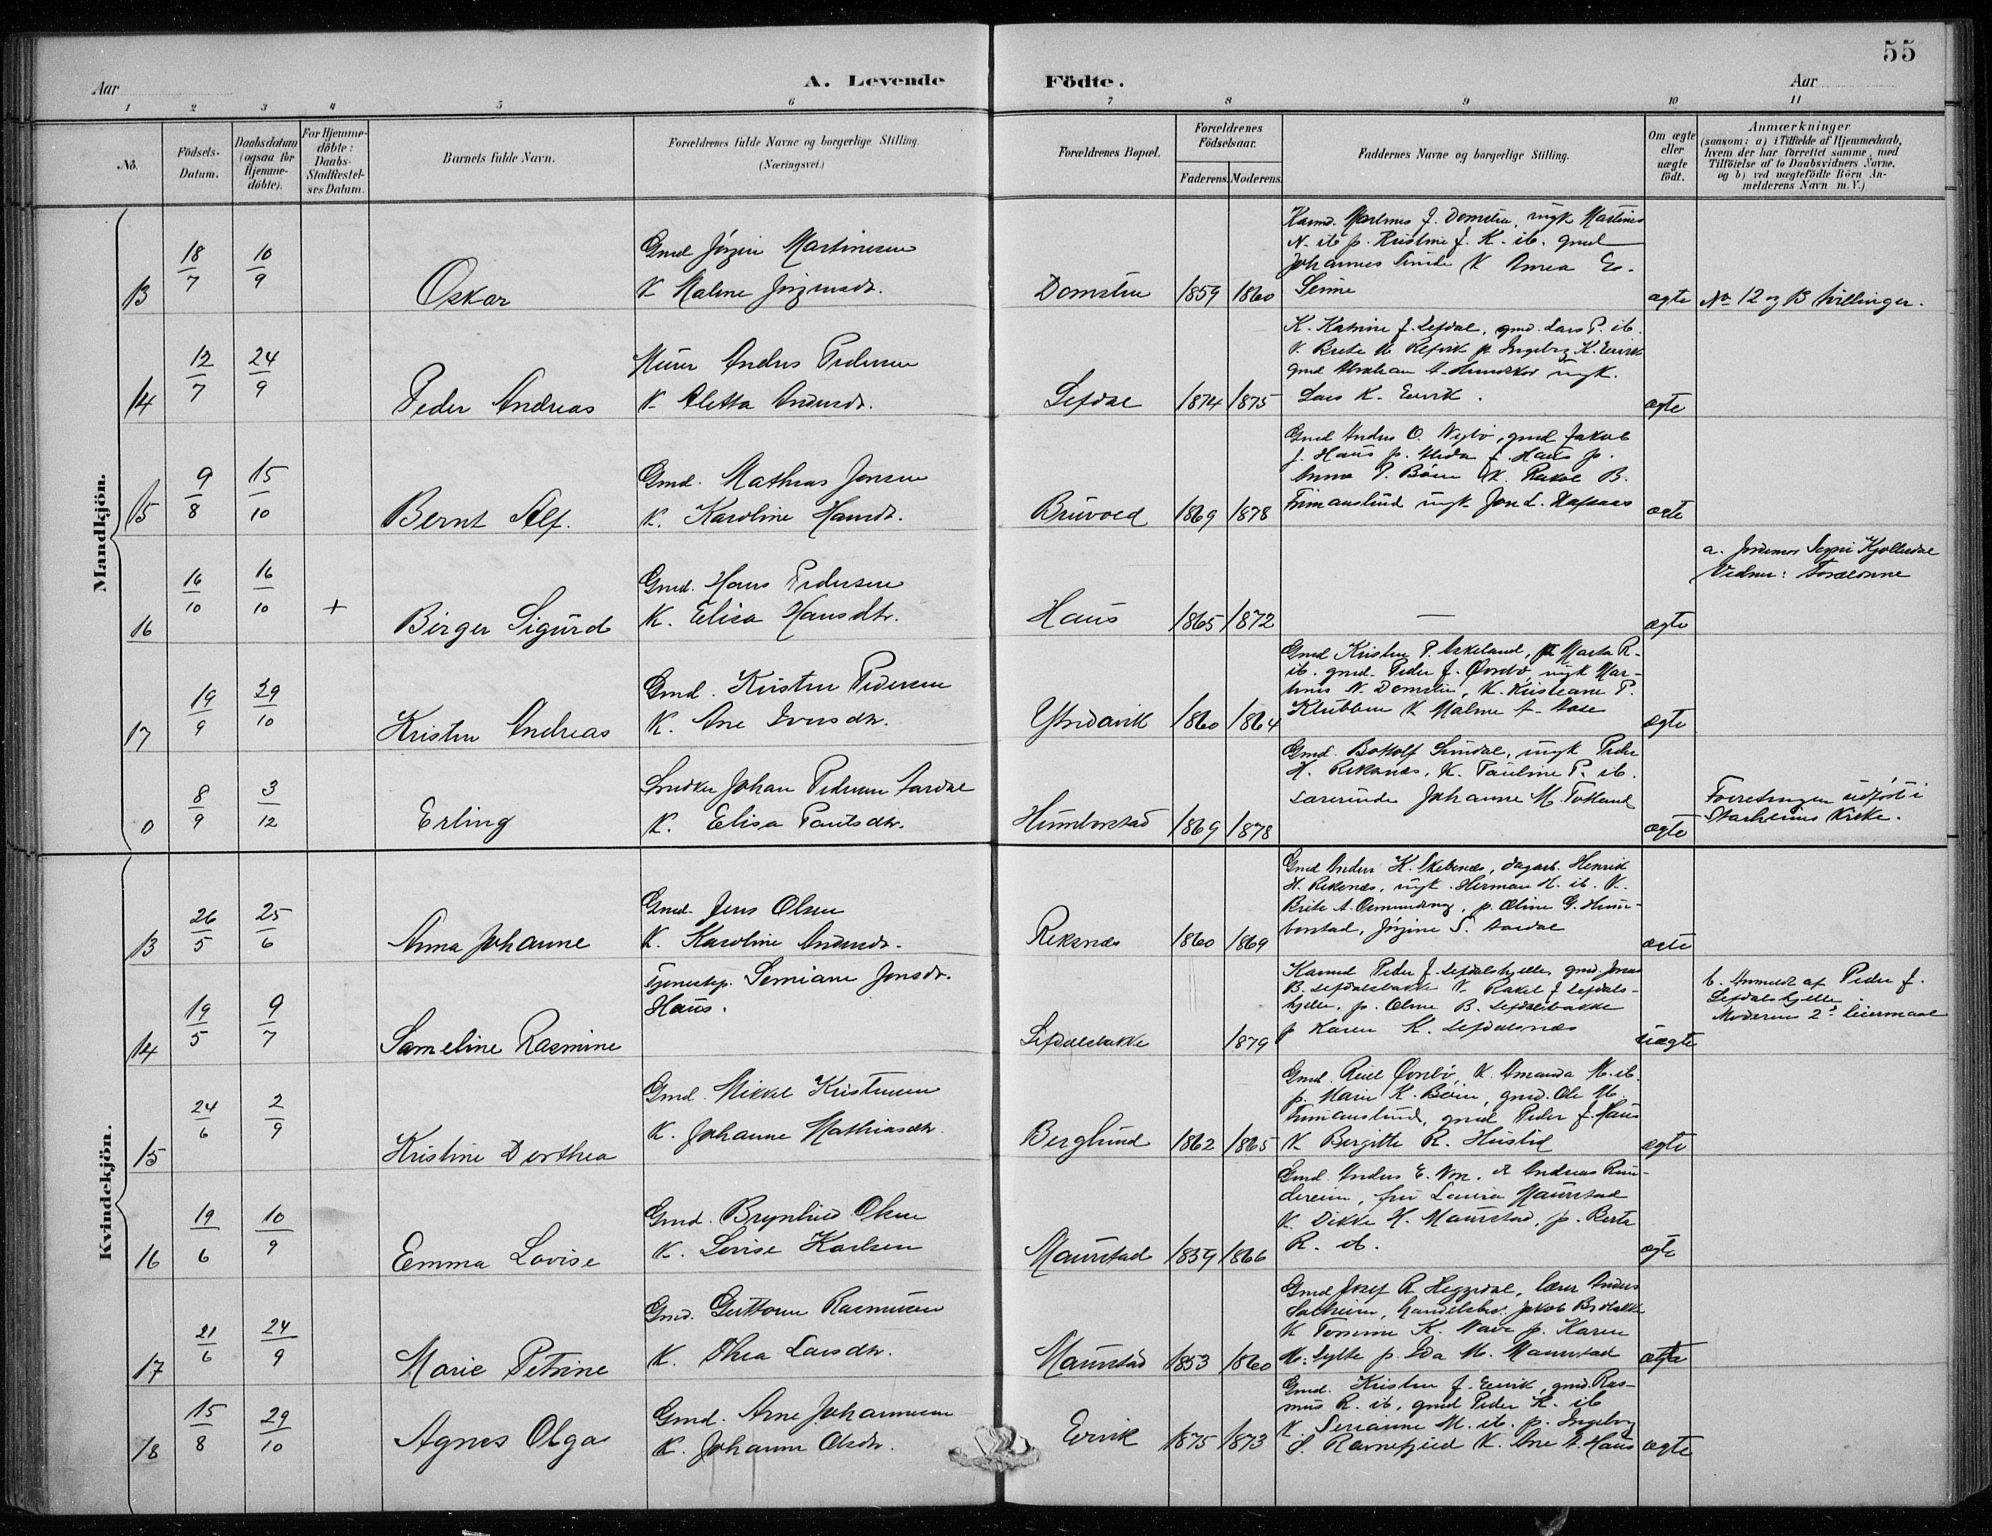 55
Aar
A. Levende Födte.
Aar
1 2 3 4 5 6 7 8 9 10 11
No.
Födsels-Datum.
Daabsdatum (ogsaa for Hjemme-döbte).
For Hjemme-döbte: Daabs-Stadfæstel-ses Datum.
Barnets fulde Navn.
Forældrenes fulde Navne og borgerlige Stilling. (Næringsvei.)
Forældrenes Bopæl.
Forældrenes Födselsaar.
Faderens. Moderens.
Faddernes Navne og borgerlige Stilling.
Om ægte eller uægte födt.
Anmærkninger
(saasom: a) i Tilfælde af Hjemmedaab,
hvem der har forrettet samme, med
Tilföielse af to Daabsvidners Navne,
og b) ved uægtefödte Börn An-
melderens Navn m. V.)
Mandkjön.
13 18/7 10/9 Oskar
Gmd Jörgen Martinesen
K. Malene Jörgensdr.
Domsten 1859 1860
Johannes K. Anna
ægte
No 12 og 13 tvillinger.
14 12/7 24/9 Peder Andreas
Murer Anders Pedersen
K. Aletta Andersdr.
Lefdal 1874 1875
K. Katrine J. Lefdal, gmd. Lars P. ib.
K. Brite M. Refvik p. Ingeborg K. Ervik
Lars K. Ervik.
ægte
15 9/8 15/10 Bernt Alf.
Gmd. Mathias Jonsen
K. Karoline Hansdr.
Bruvold 1869 1878
Gmd Anders O. Nybö, gmd Jakob
J. Haus p. J. Haus p.
Anna P. Böen K. Rakel B.
Frimanslund ungk. Jon L.
ægte
16 16/10 16/10 + Birger Sigurd
Gmd. Hans Pedersen
K. Elisa Hansdtr.
Haus 1865 1872 —
ægte
a. Jordemor Kjölledal
Vidner: Forældrene
17 19/9 29/10 Kristen Andreas
Gmd. Kristen Pedersen
K. Ane Iversdtr.
Ytredavik 1860 1864
Gmd Kristen P. Askeland, p Marta R.
ib. gmd. Peder J. ungk Mar-
tines N. Domsten, K. Kristiane P.
Klubben K Malene A. Aase
ægte
0 8/9 3/12 Erling
Snedker Johan Pedersen Aardal
K. Elisa Paulsdtr.
Humborstad 1869 1878
Gmd. Bottolf ungk Peder
H. Reksnæs, K. Pauline P. ib.
Lærerinde Johanne M. Totland
ægte
Forretningen udfört i
Starheims Kirke.
Kvindekjön.
13 26/5 25/6 Anna Johanne
Gmd. Jens Olsen
K. Karoline Andersdr.
Reksnæs 1860 1869
Gmd Anders K. Skibenæs, dagarb. Henrik
H. Reksnæs, ungk. Herman H. ib. K.
Brite A. Osmundsvåg, p. Oline G. Hum-
borstad, Jörgine S. Aardal
ægte
14 19/5 9/7 Sameline Rasmine
Tjenestep. Semiane Jonsdr.
Haus.
Lefdalsbakke 1879
Kaarmd Peder J. Lefdalshjelle, gmd Jonas
B. Lefdalsbakke K. Rakel J Lefdals-
hjelle, p. Oline B. Lefdalsbakke
p Karen K. Lefdalsnæs
uægte
b. Anmeldt af Peder J.
Lefdalshjelle
Moderens 2d leiermaal
15 24/6 2/9 Kristine Dorthea
Gmd. Mikkel Kristensen
K. Johanne Mathiasdtr.
Berglund 1862 1865
K. Amanda M. ib.
p. Marie K. Böen, gmd. Ole M.
Frimanslund, gmd Peder J. Haus
K Birgitte R. Huslid
ægte
16 19/6 10/9 Emma Lovise
Gmd. Brynhild Olsen
K. Lovise Karlsen
Maurstad 1859 1866
Gmd. Anders E. Nor. Andreas Run-
dereim, fru Laura Maurstad
K. Dikka H. Maurstad, p. Berta
R. ib.
ægte
17 21/6 24/9 Marie Petrine
Gmd. Guttorm Rasmussen
K. Thea Larsdtr.
Maurstad 1853 1860
Gmd Josef R. Heggdal, lærer Anders
Solheim, handelsbet. Jakob
K K. Nave p. Karen
M. Sylte p. Ida M. Maurstad
ægte
18 15/8 29/10 Agnes Olga
Gmd. Arne Johannesen
K. Johanne Olsdtr.
Ervik 1875 1873
Gmd. Kristen J. Ervik, gmd. Ras-
mus R. ib, gmd Peder K. ib
K. Serianne M. ib. p. Ingeborg
S. Ravnefjeld K. Ane A. Haus
ægte